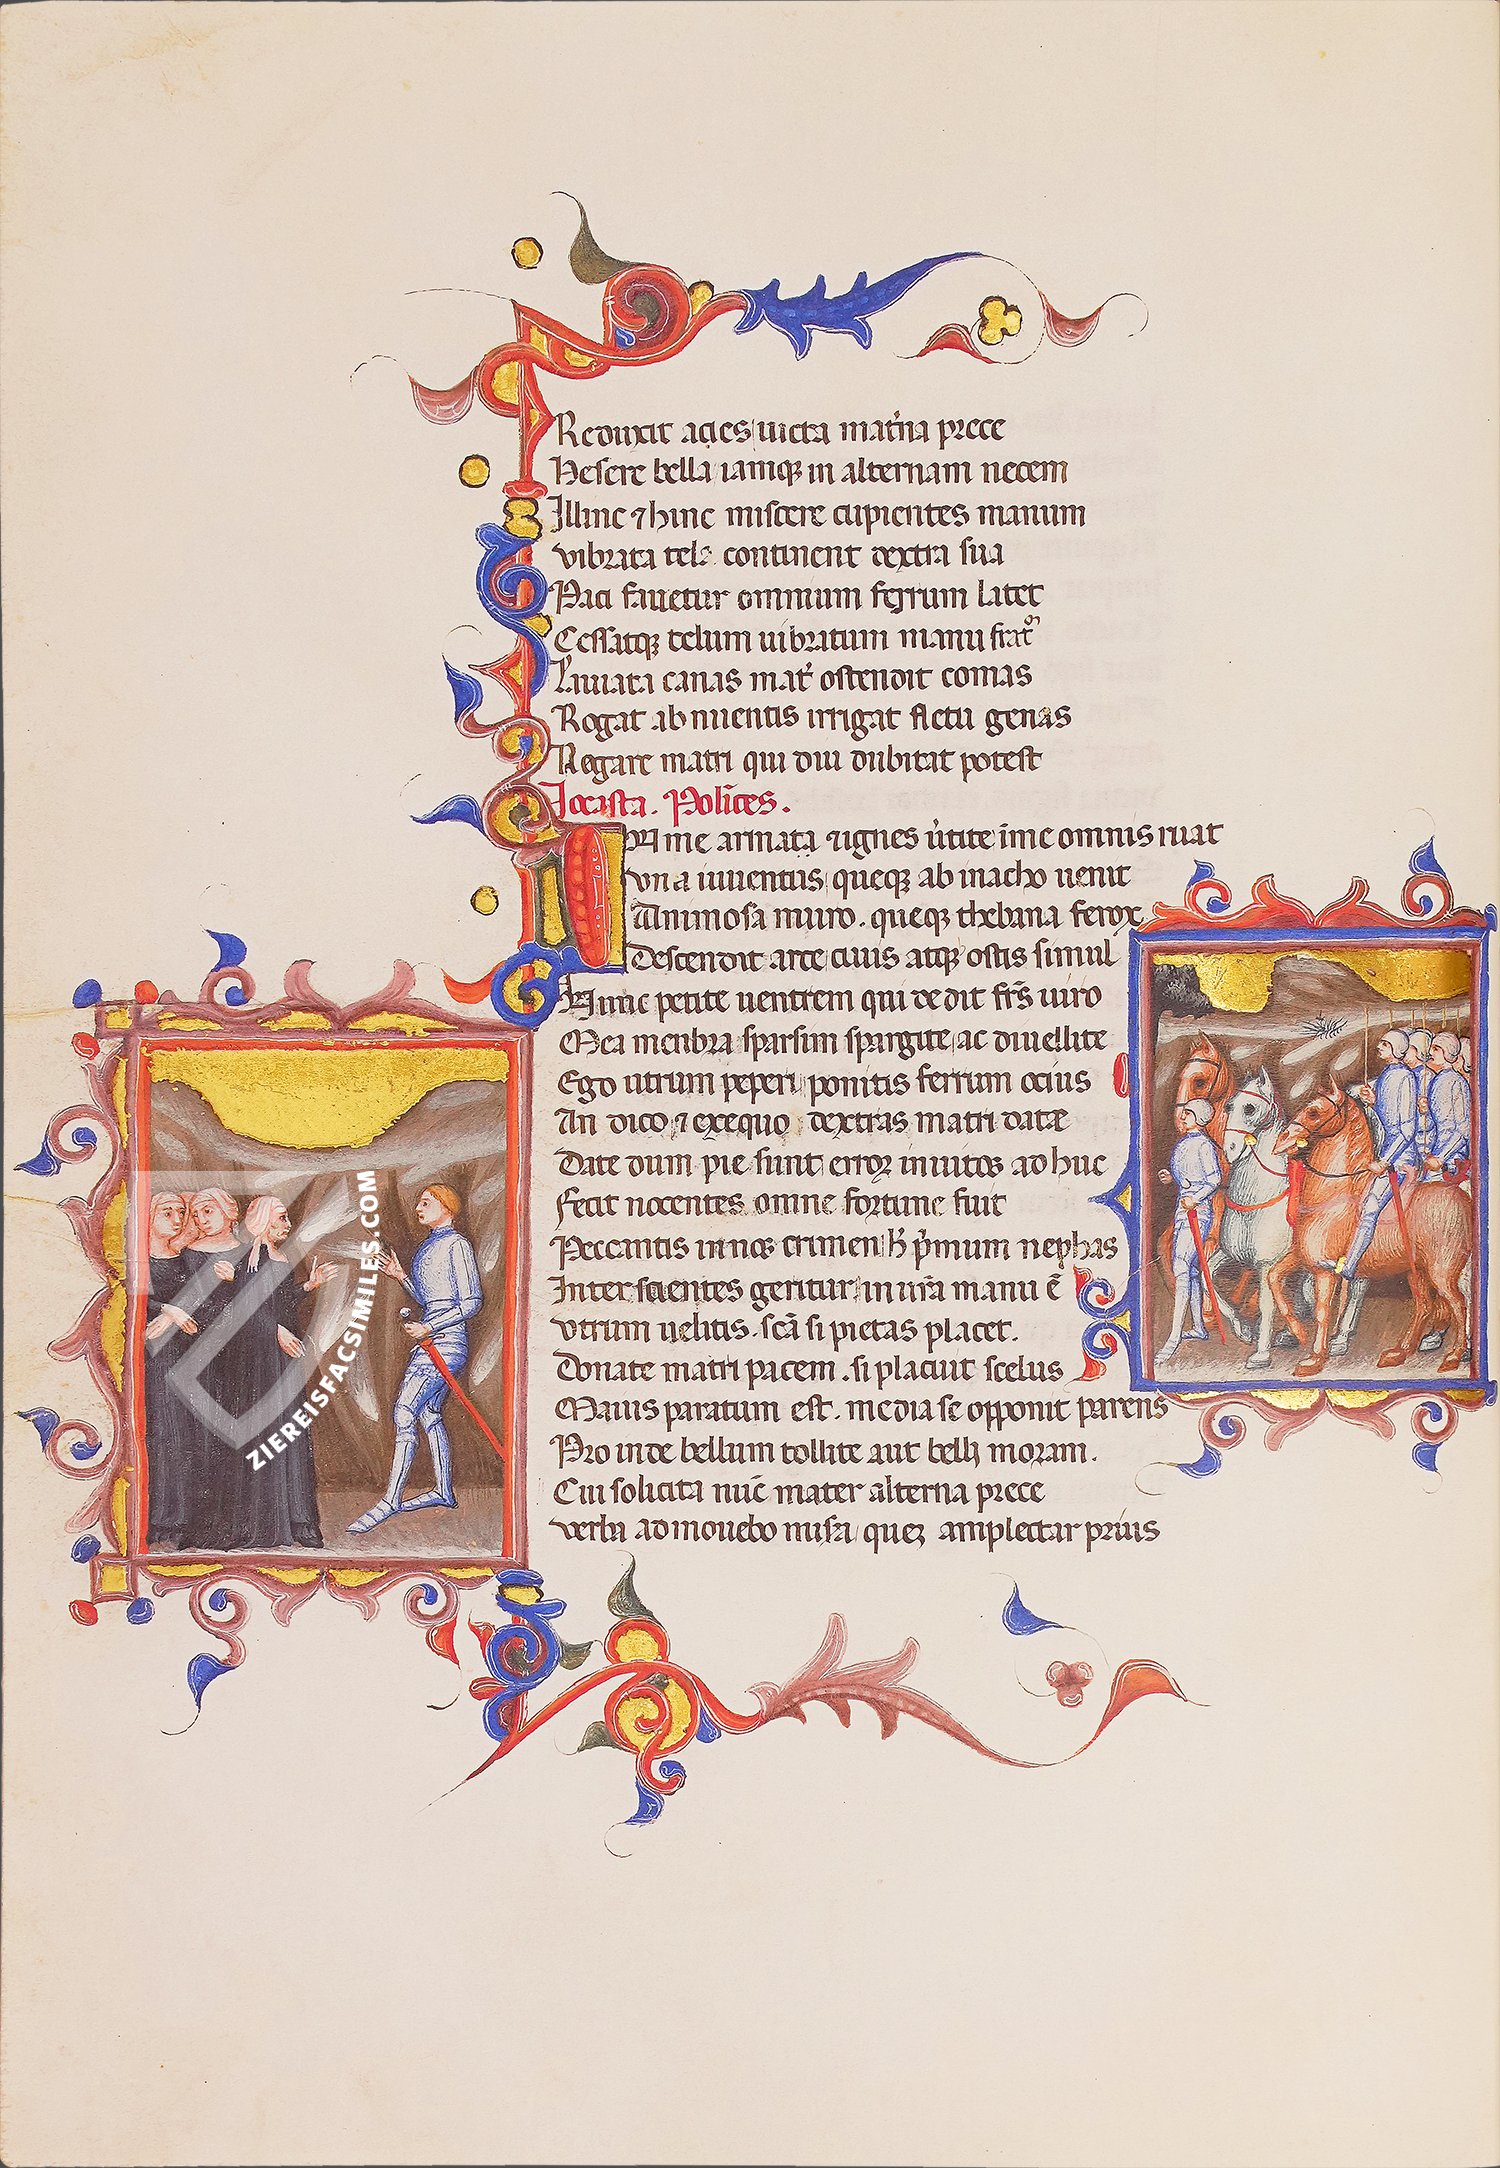 Reduxit acies uicta mat'na prece
Hesere bella iamq; in alternam necem
Illinc ⁊ hinc miscere cupientes manum
vibrata tela continent dextra sua
Paci fauetur omnium ferrum latet
Cessatq; telum uibratum manu frat
Laniata canas mat' ostendit comas
Rogat abnuentis irrigat fletu genas
Negare matri qui diu dubitat potest
Iocasta. Polices.
N me arma ⁊ ignes u'tite ime omnis ruat
vna iuuentus queq; ab inacho uenit
Animosa muro. queq; thebana ferox
Descendit arce ciuis atq; ostis simul
Hunc petite uentrem qui dedit frs uiro
Mea menbra sparsim spargite ac diuellite
Ego utrum peperi ponitis ferrum ocius
An dico ⁊ exequo dextras matri date
Date dum pie sunt error inuitos ad huc
Fecit nocentes omne fortune fuit
Peccantis in nos crimen h p'mum nephas
Inter scientes geritur in ura manu e
vtrum uelitis. sca si pietas placet.
Donate matri pacem. si placuit scelus
Maius paratum est. media se opponit parens
Pro inde bellum tollite aut belli moram.
Cui solicita nuc mater alterna prece
verba admouebo misa quez amplectar prius
ZIEREISFACSIMILES.COM